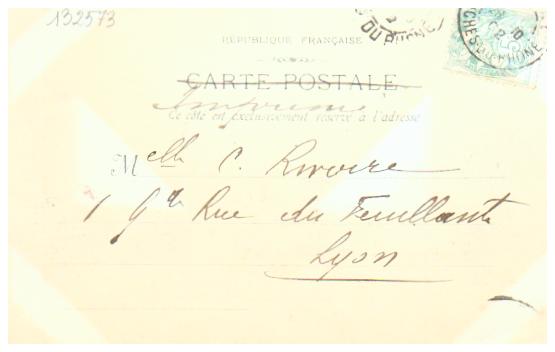 132573
DU RHONE
CHES-DU-RHONE
RÉPUBLIQUE FRANÇAISE
CARTE POSTALE
Imprimé
Ce côté est exclusivement réservé à l'adresse
Melle C. Rivoire
1 Gde Rue des Feuillants
Lyon